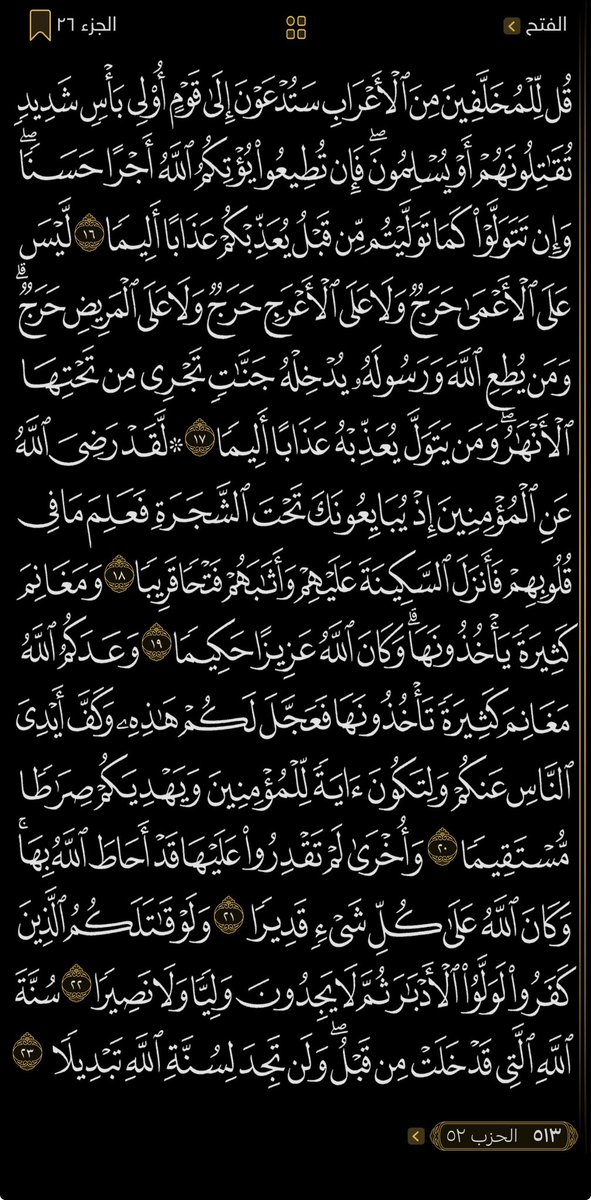 الفتح
الجزء ٢٦
قُل لِّلْمُخَلَّفِينَ مِنَ ٱلْأَعْرَابِ سَتُدْعَوْنَ إِلَىٰ قَوْمٍ أُو۟لِى بَأْسٍ شَدِيدٍ
تُقَٰتِلُونَهُمْ أَوْ يُسْلِمُونَ ۖ فَإِن تُطِيعُوا۟ يُؤْتِكُمُ ٱللَّهُ أَجْرًا حَسَنًا ۖ
وَإِن تَتَوَلَّوْا۟ كَمَا تَوَلَّيْتُم مِّن قَبْلُ يُعَذِّبْكُمْ عَذَابًا أَلِيمًا ١٦ لَّيْسَ
عَلَى ٱلْأَعْمَىٰ حَرَجٌ وَلَا عَلَى ٱلْأَعْرَجِ حَرَجٌ وَلَا عَلَى ٱلْمَرِيضِ حَرَجٌ ۗ
وَمَن يُطِعِ ٱللَّهَ وَرَسُولَهُۥ يُدْخِلْهُ جَنَّٰتٍ تَجْرِى مِن تَحْتِهَا
ٱلْأَنْهَٰرُ ۖ وَمَن يَتَوَلَّ يُعَذِّبْهُ عَذَابًا أَلِيمًا ١٧ ۞ لَّقَدْ رَضِىَ ٱللَّهُ
عَنِ ٱلْمُؤْمِنِينَ إِذْ يُبَايِعُونَكَ تَحْتَ ٱلشَّجَرَةِ فَعَلِمَ مَا فِى
قُلُوبِهِمْ فَأَنزَلَ ٱلسَّكِينَةَ عَلَيْهِمْ وَأَثَٰبَهُمْ فَتْحًا قَرِيبًا ١٨ وَمَغَانِمَ
كَثِيرَةً يَأْخُذُونَهَا ۗ وَكَانَ ٱللَّهُ عَزِيزًا حَكِيمًا ١٩ وَعَدَكُمُ ٱللَّهُ
مَغَانِمَ كَثِيرَةً تَأْخُذُونَهَا فَعَجَّلَ لَكُمْ هَٰذِهِۦ وَكَفَّ أَيْدِىَ
ٱلنَّاسِ عَنكُمْ وَلِتَكُونَ ءَايَةً لِّلْمُؤْمِنِينَ وَيَهْدِيَكُمْ صِرَٰطًا
مُّسْتَقِيمًا ٢٠ وَأُخْرَىٰ لَمْ تَقْدِرُوا۟ عَلَيْهَا قَدْ أَحَاطَ ٱللَّهُ بِهَا ۚ
وَكَانَ ٱللَّهُ عَلَىٰ كُلِّ شَىْءٍ قَدِيرًا ٢١ وَلَوْ قَٰتَلَكُمُ ٱلَّذِينَ
كَفَرُوا۟ لَوَلَّوُا۟ ٱلْأَدْبَٰرَ ثُمَّ لَا يَجِدُونَ وَلِيًّا وَلَا نَصِيرًا ٢٢ سُنَّةَ
ٱللَّهِ ٱلَّتِى قَدْ خَلَتْ مِن قَبْلُ ۖ وَلَن تَجِدَ لِسُنَّةِ ٱللَّهِ تَبْدِيلًا ٢٣
٥١٣ الحزب ٥٢